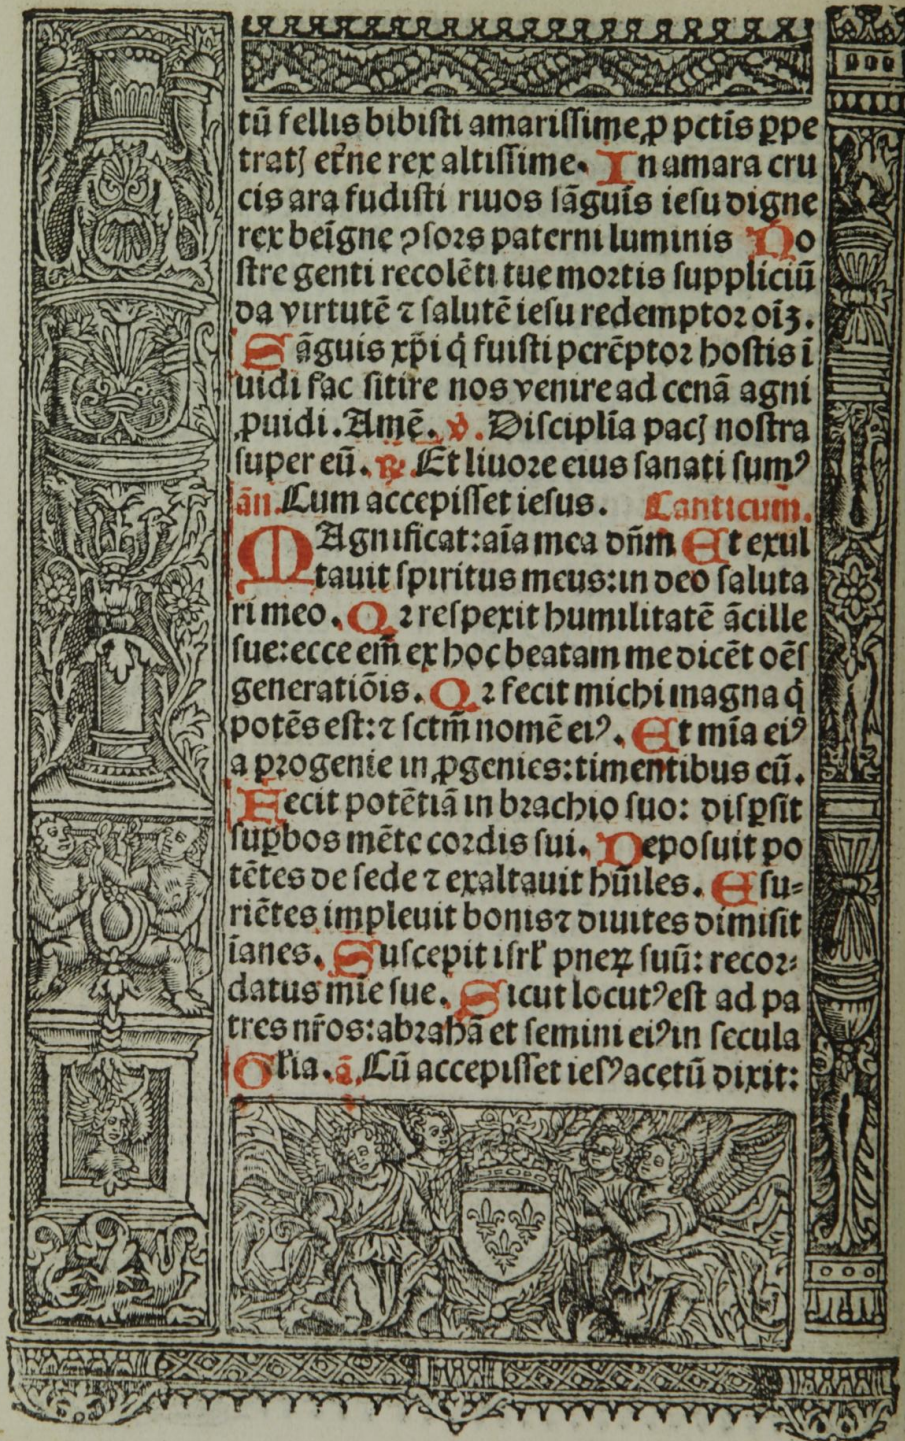 tū fellis bibisti amarissime, ꝓ pctīs ꝑpe
tratꝭ et̄ne rex altissime. In amara cru
cis ara fudisti riuos sāguis iesu digne
rex beīgne ꝯsors paterni luminis No
stre genti recolēti tue mortis suppliciū
da virtutē ⁊ salutē iesu redemptor oīꝫ.
Sāguis xp̄i q̄ fuisti perēptor hostis ī
uidi fac sitire nos venire ad cenā agni
ꝓuidi. Amē. ℣. Disciplīa pacꝭ nostra
super eū. ℟. Et liuore eius sanati sumꝰ
ān. Cum accepisset iesus. Canticum̄.
MAgnificat: aīa mea dn̄m Et exul
tauit spiritus meus: in deo saluta
ri meo. Qꝛ respexit humilitatē ācille
sue: ecce em̄ ex hoc beatam me dicēt oēs
generatiōis. Qꝛ fecit michi magna q̄
potēs est: ⁊ sctm̄ nomē eiꝰ. Et mīa eiꝰ
a progenie in ꝓgenies: timentibus eū.
Fecit potētiā in brachio suo: disꝑsit
suꝑbos mēte cordis sui. Deposuit po
tētes de sede ⁊ exaltauit hūiles. Esu-
riētes impleuit bonis ⁊ diuites dimisit
īanes. Suscepit isrl̄ pueꝝ suū: recor-
datus mīe sue. Sicut locutꝰ est ad pa
tres nr̄os: abrahā et semini eiꝰ in secula
Gl̄ia. ā. Cū accepisset iesꝰ acetū dixit: